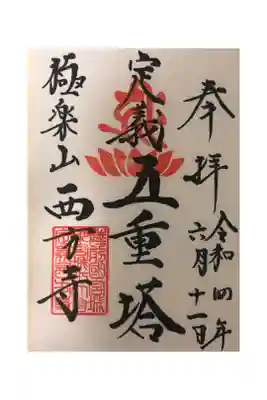 奉拝
令和四年
六月十一日
定義五重塔
極楽山西方寺